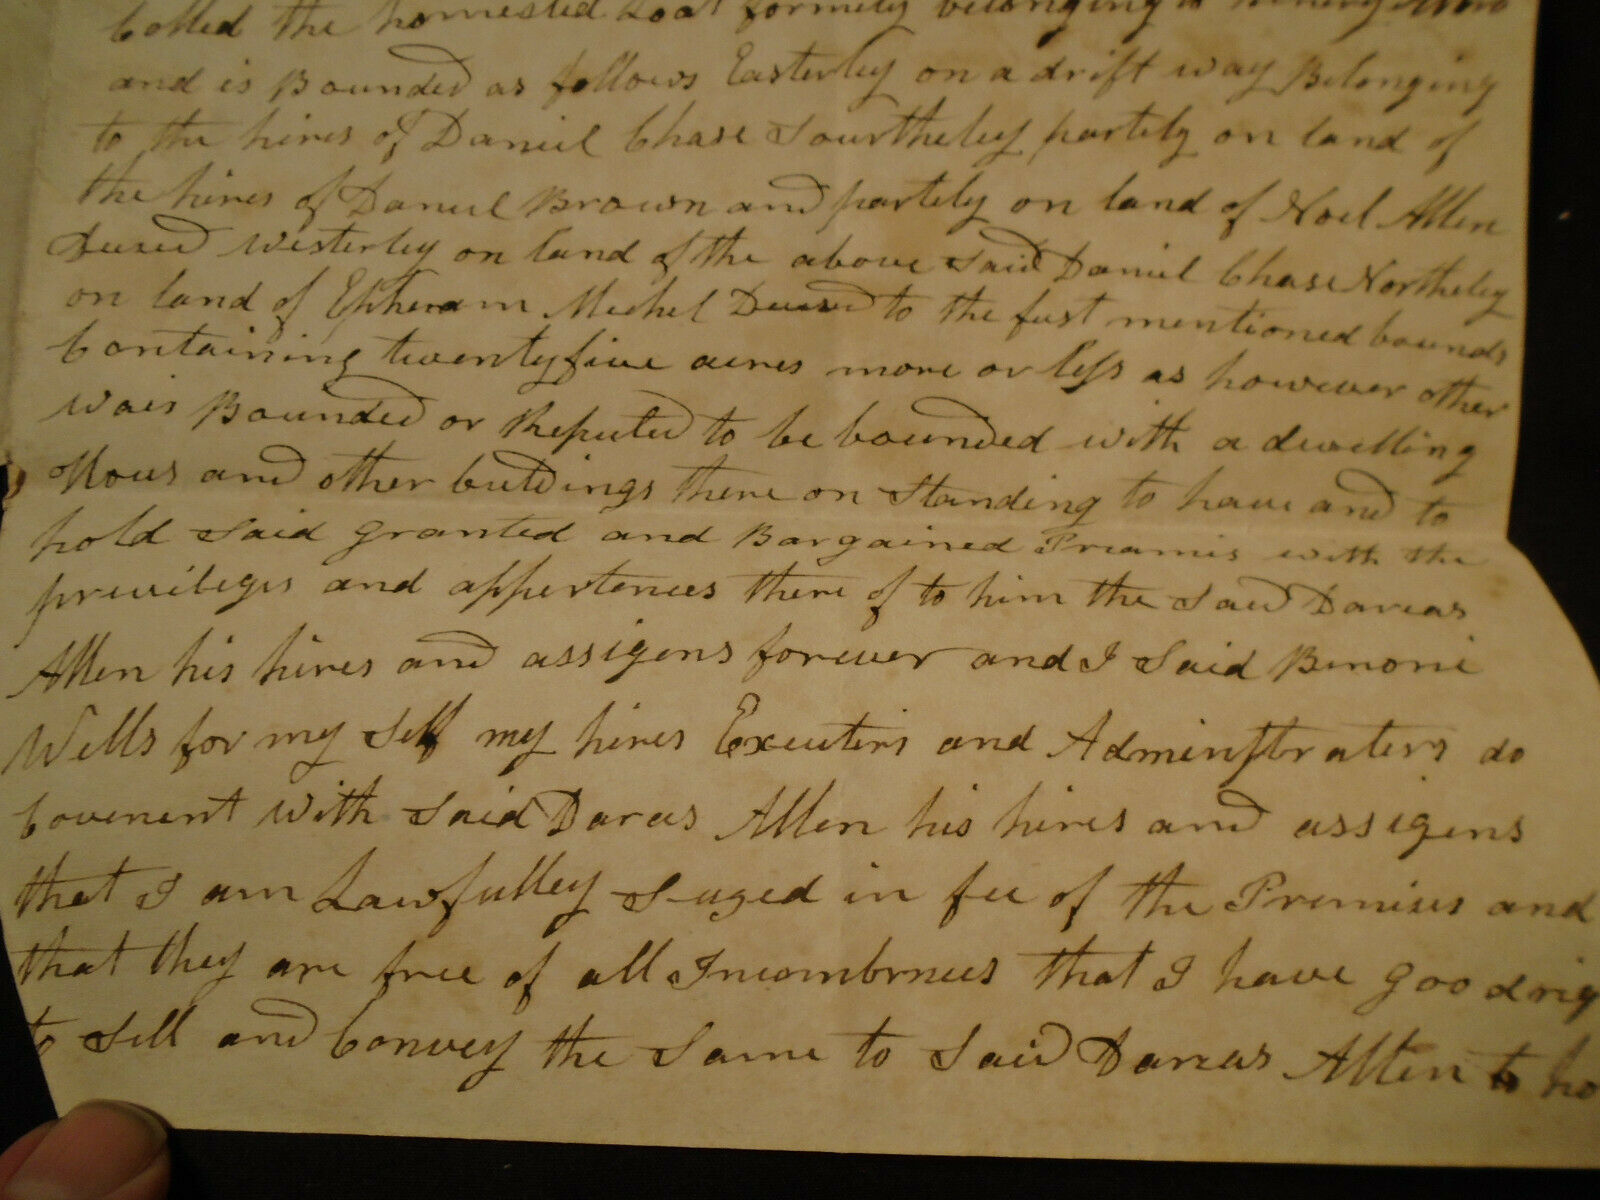 Colled the homested Loat formely belonging to
and is Bounded as follows Easterley on a drift way Belonging
to the hires of Daniel Chase Sourtheley partely on land of
the hires of Daniel Brown and partely on land of Noel Allen
Deased westerley on land of the above said Daniel Chase Northeley
on land of Ephram Mechel Deased to the fust mentioned bounds
Containing twentyfive acres more or less as however other
wais Bounded or Reputed to be bounded with a dwelling
Hous and other buldings there on Standing to have and to
hold said granted and Bargained Preamis with the
priveileges and appertences there of to him the said Dareas
Allen his hires and assigens forever and I said Benonie
Wells for my self my hires Executirs and Adminstraters do
Covenent with said Dareas Allen his hires and assigens
that I am Lawfulley Seazed in fee of the Premises and
that they are free of all Incombrnces that I have good rig
to Sell and Convey the Same to Said Dareas Allen to ho